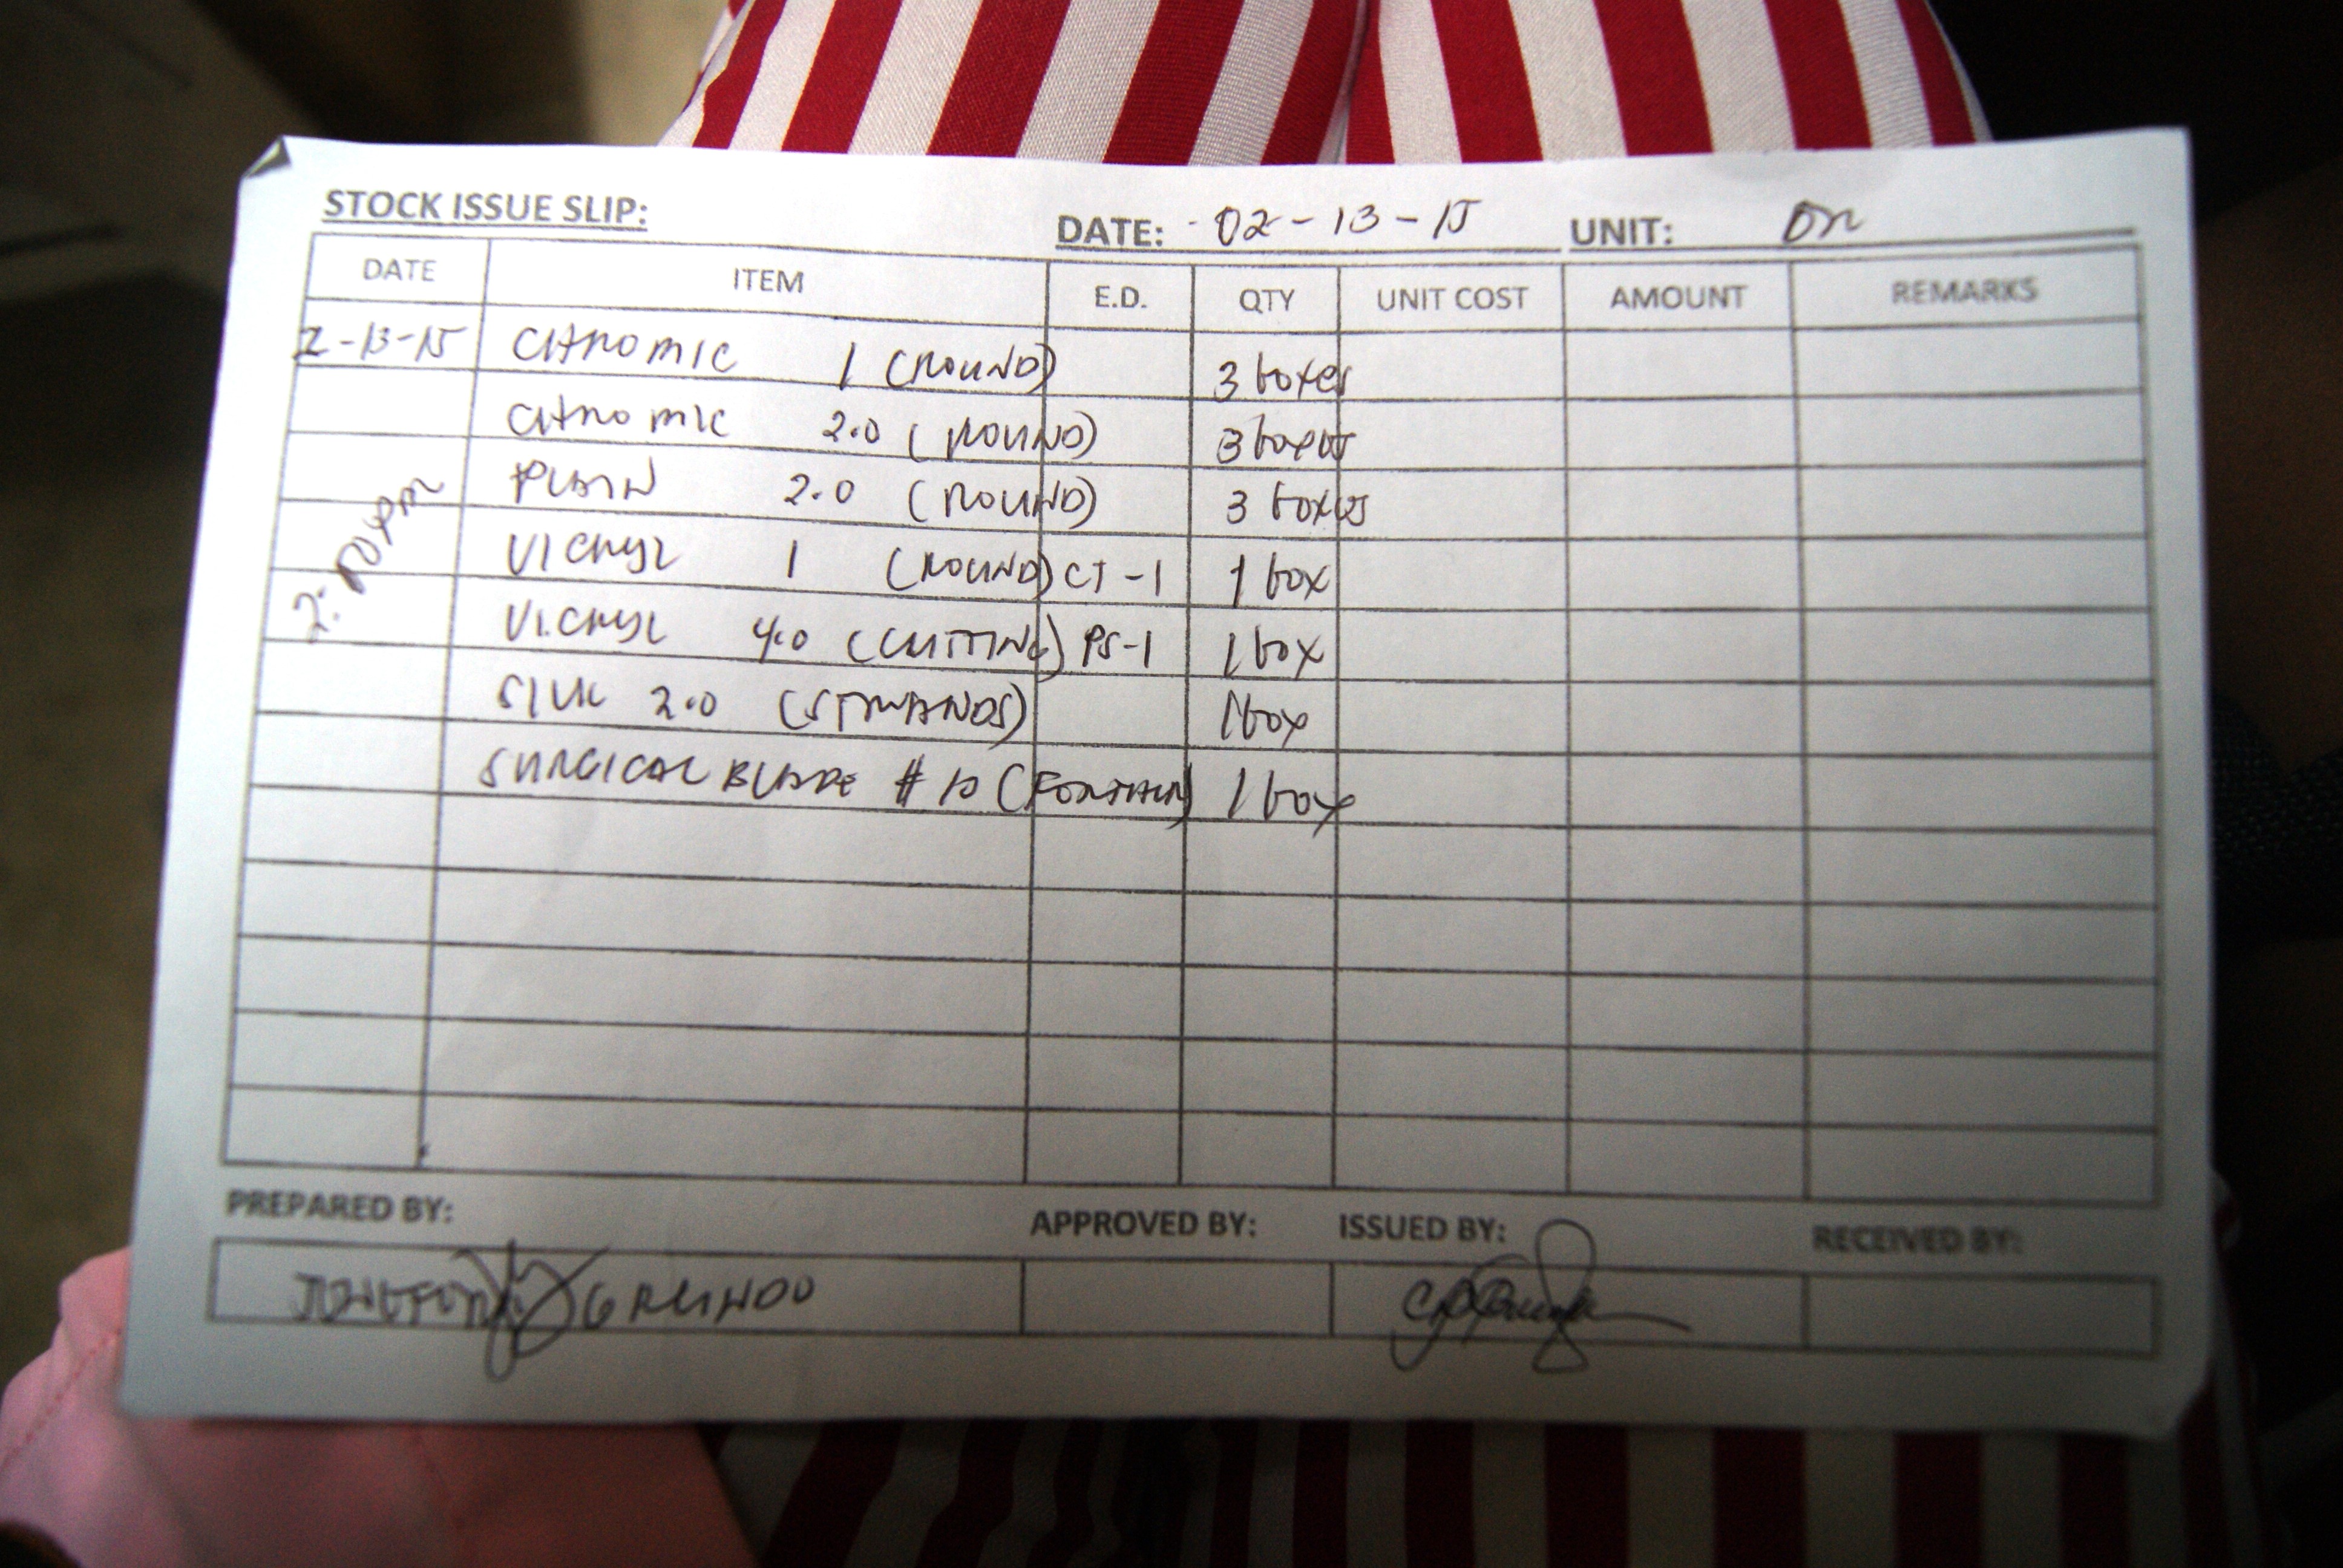 STOCK ISSUE SLIP: DATE: 02-13-15 UNIT: OR
DATE ITEM E.D. QTY UNIT COST AMOUNT REMARKS
2-13-15 CHROMIC 1 (ROUND) 3 boxes
CHROMIC 2.0 (ROUND) 3 boxes
PLAIN 2.0 (ROUND) 3 boxes
VICRYL 1 (ROUND) CT-1 1 box
2:50PM
VICRYL 4.0 (CUTTING) PS-1 1 box
SILK 2.0 (STRANDS) 1 box
SURGICAL BLADE # 10 1 box
PREPARED BY: APPROVED BY: ISSUED BY: RECEIVED BY: